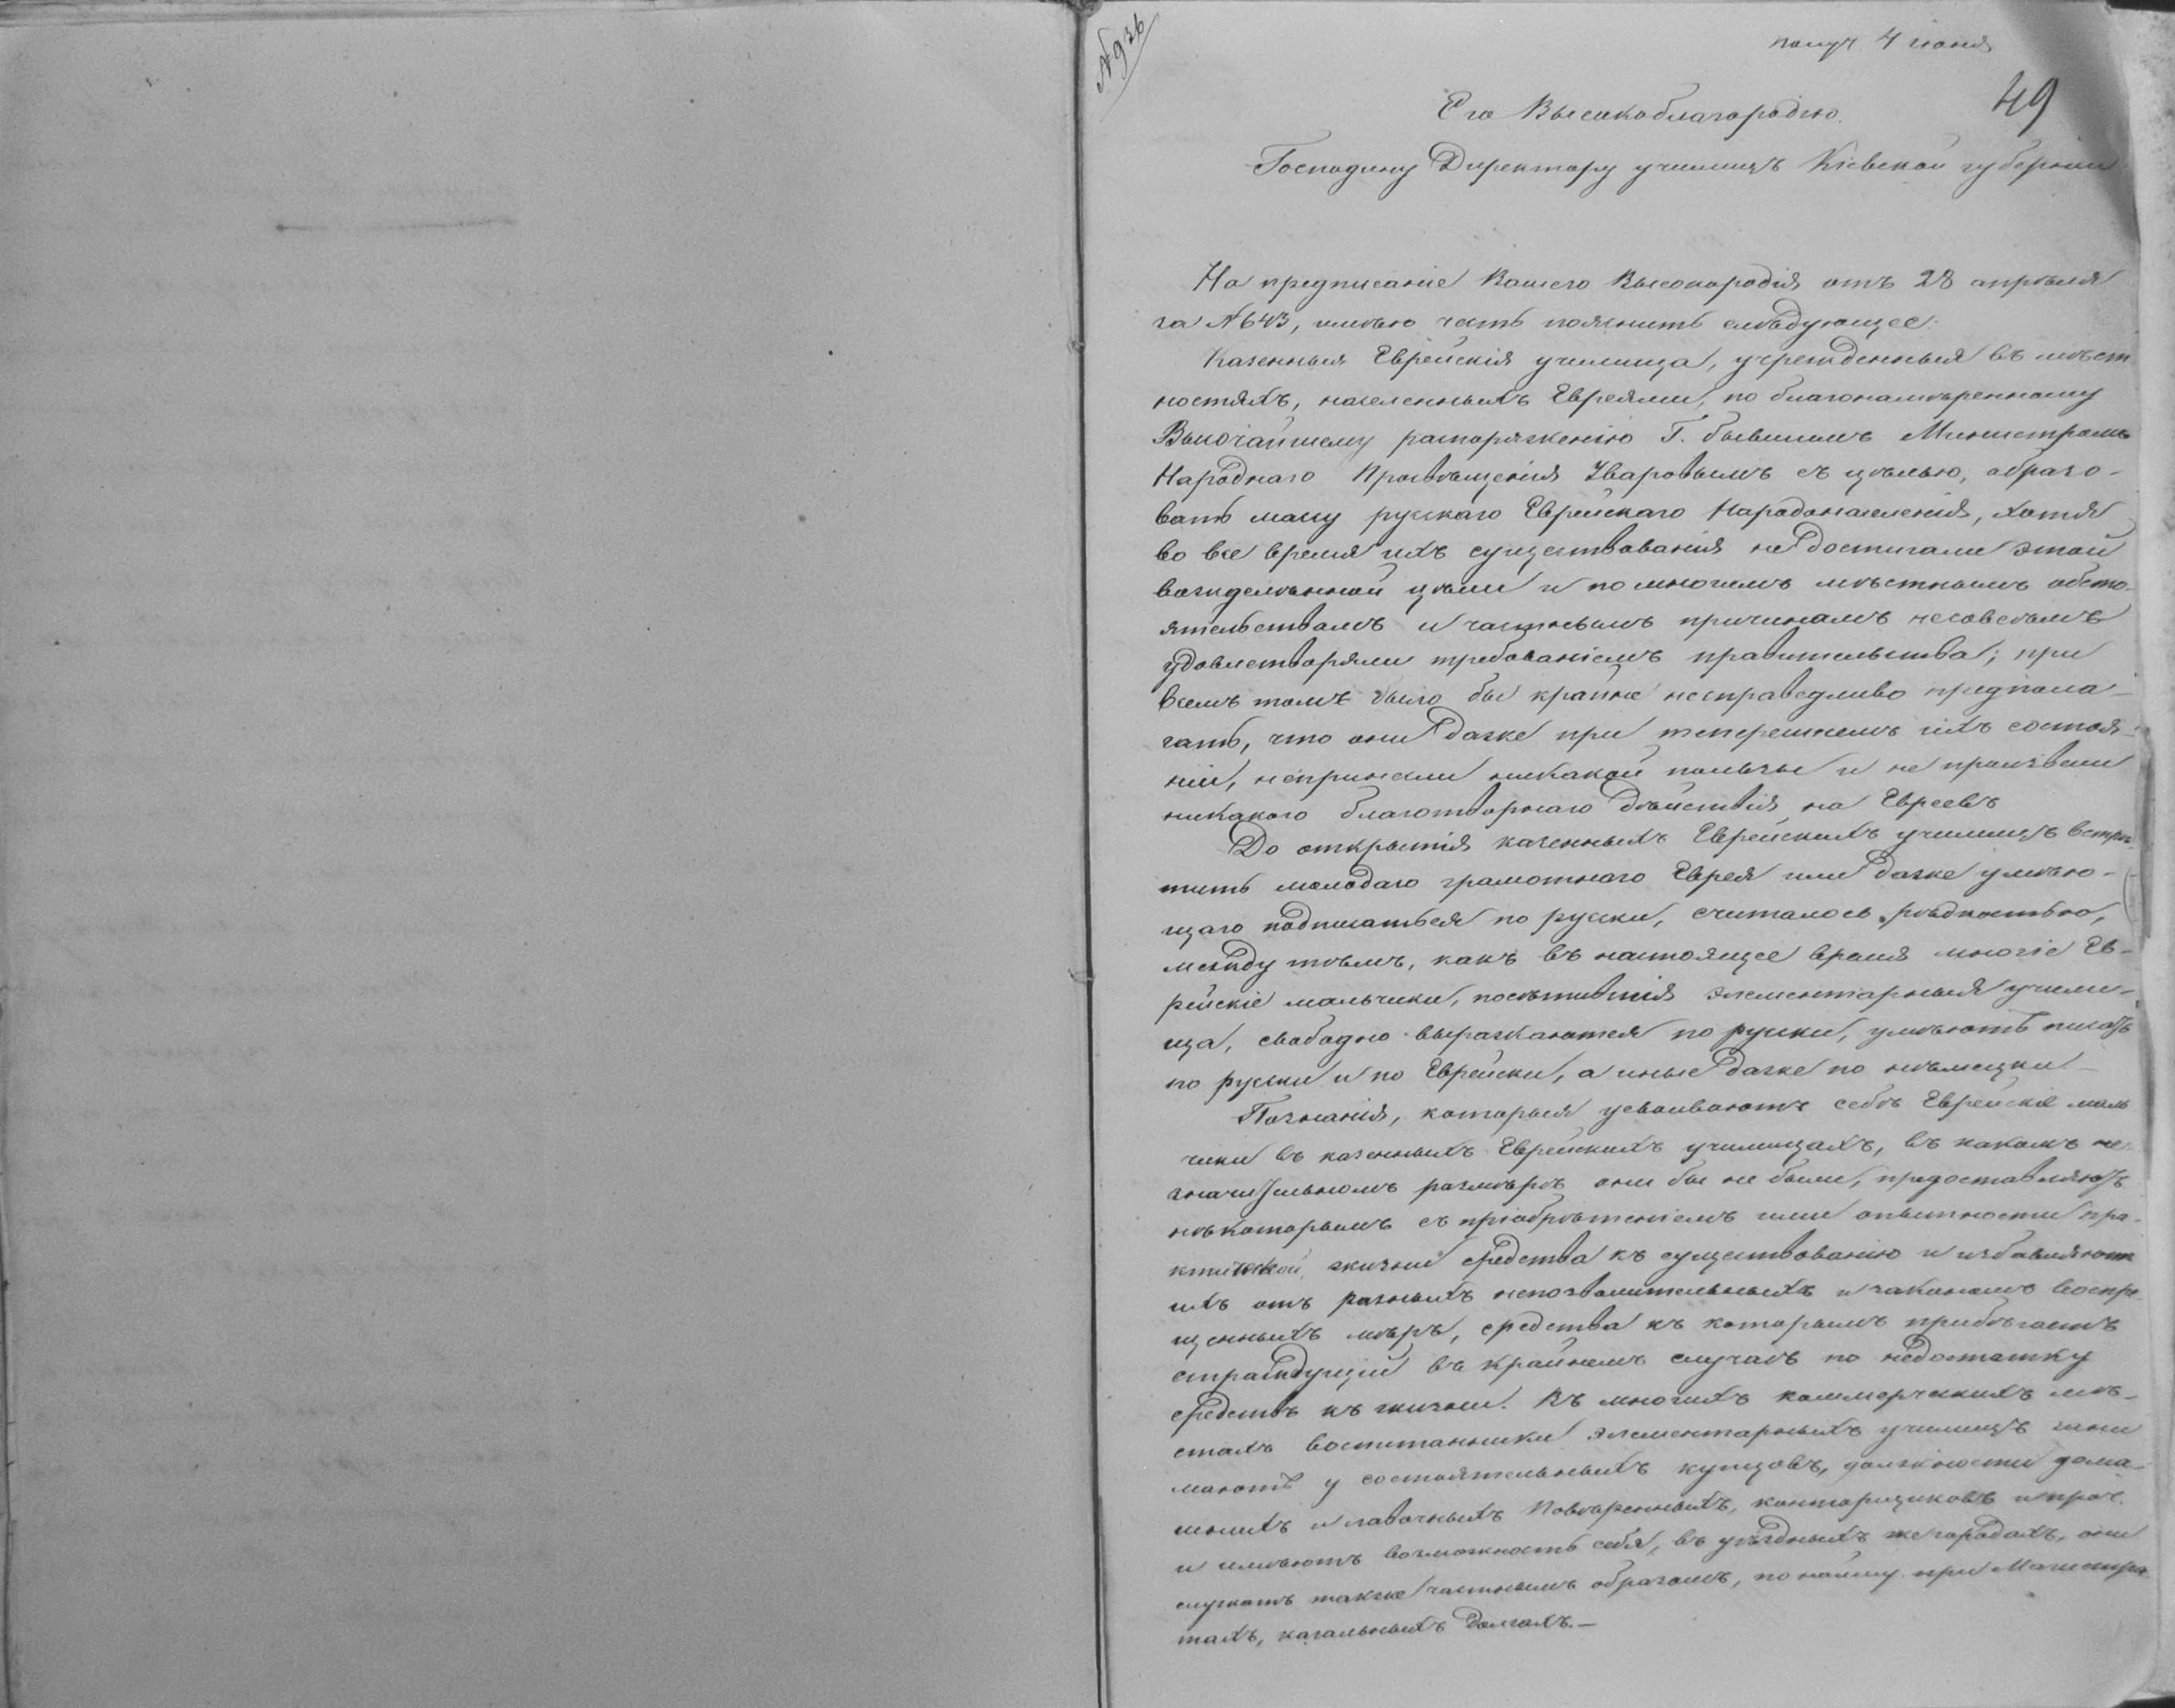 № 936
получ 4 июня
49
Его Высокоблагородію
Господину Директору училищъ Кіевской губерніи
На предписаніе Вашего Высокородія отъ 28 апрѣля
за № 643, имѣю честь пояснить слѣдующее:
Казенныя Еврейскія училища, учрежденныя въ мѣст
ностяхъ, населенныхъ Евреями, по благонамѣренному
Высочайшему распоряженію Г. бывшимъ Министромъ
Народнаго Просвѣщенія Уваровымъ съ цѣлью, образо-
вать массу русскаго Еврейскаго Народонаселенія, хотя
во все время ихъ существованія не достигали этой
вожделѣнной цѣли и по многимъ мѣстнымъ обсто-
ятельствамъ и частнымъ причинамъ несовсѣмъ
удовлетворяли требованіемъ правительства; при
всемъ томъ было бы крайне несправедливо предпола-
гать, что они даже при теперешнемъ ихъ состоя-
ніи, непринесли никакой пользы и не произвели
никакого благотворнаго дѣйствія на Евреевъ
До открытія казенныхъ Еврейскихъ училищъ встрѣ
тить молодаго грамотнаго Еврея или даже умѣю-
щаго подписаться по русски, считалось рѣдкостью,
между тѣмъ, какъ въ настоящее время многіе Ев-
рейскіе мальчики, посѣтившія элементарныя учили-
ща, свободно выражаются по русски, умѣютъ писать
по русски и по Еврейски, а иные даже по нѣмецки-
Познанія, которыя усвоиваютъ себѣ Еврейскіе маль
чики въ казенныхъ Еврейскихъ училищахъ, въ какомъ не-
значительномъ размѣрѣ они бы не были, предоставляютъ
нѣкоторымъ съ пріобрѣтеніемъ ими опытности пра-
ктической жизни средства къ существованію и избавляютъ
ихъ отъ разныхъ непозволительныхъ и закономъ воспре
щенныхъ мѣръ, средства къ которымъ прибѣгаетъ
страждущій въ крайнемъ случаѣ по недостатку
средствъ къ жизни. Въ многихъ коммерческихъ мѣ-
стахъ воспитанники элементарныхъ училищъ зани
маютъ у состоятельныхъ купцовъ, должности дома-
шнихъ и лавочныхъ повѣренныхъ, конторщиковъ и проч.
и имѣютъ возможность себя, въ уѣздныхъ же городахъ, они
служатъ также частнымъ образомъ, по найму при Магистра
тахъ, кагальныхъ Домахъ.—